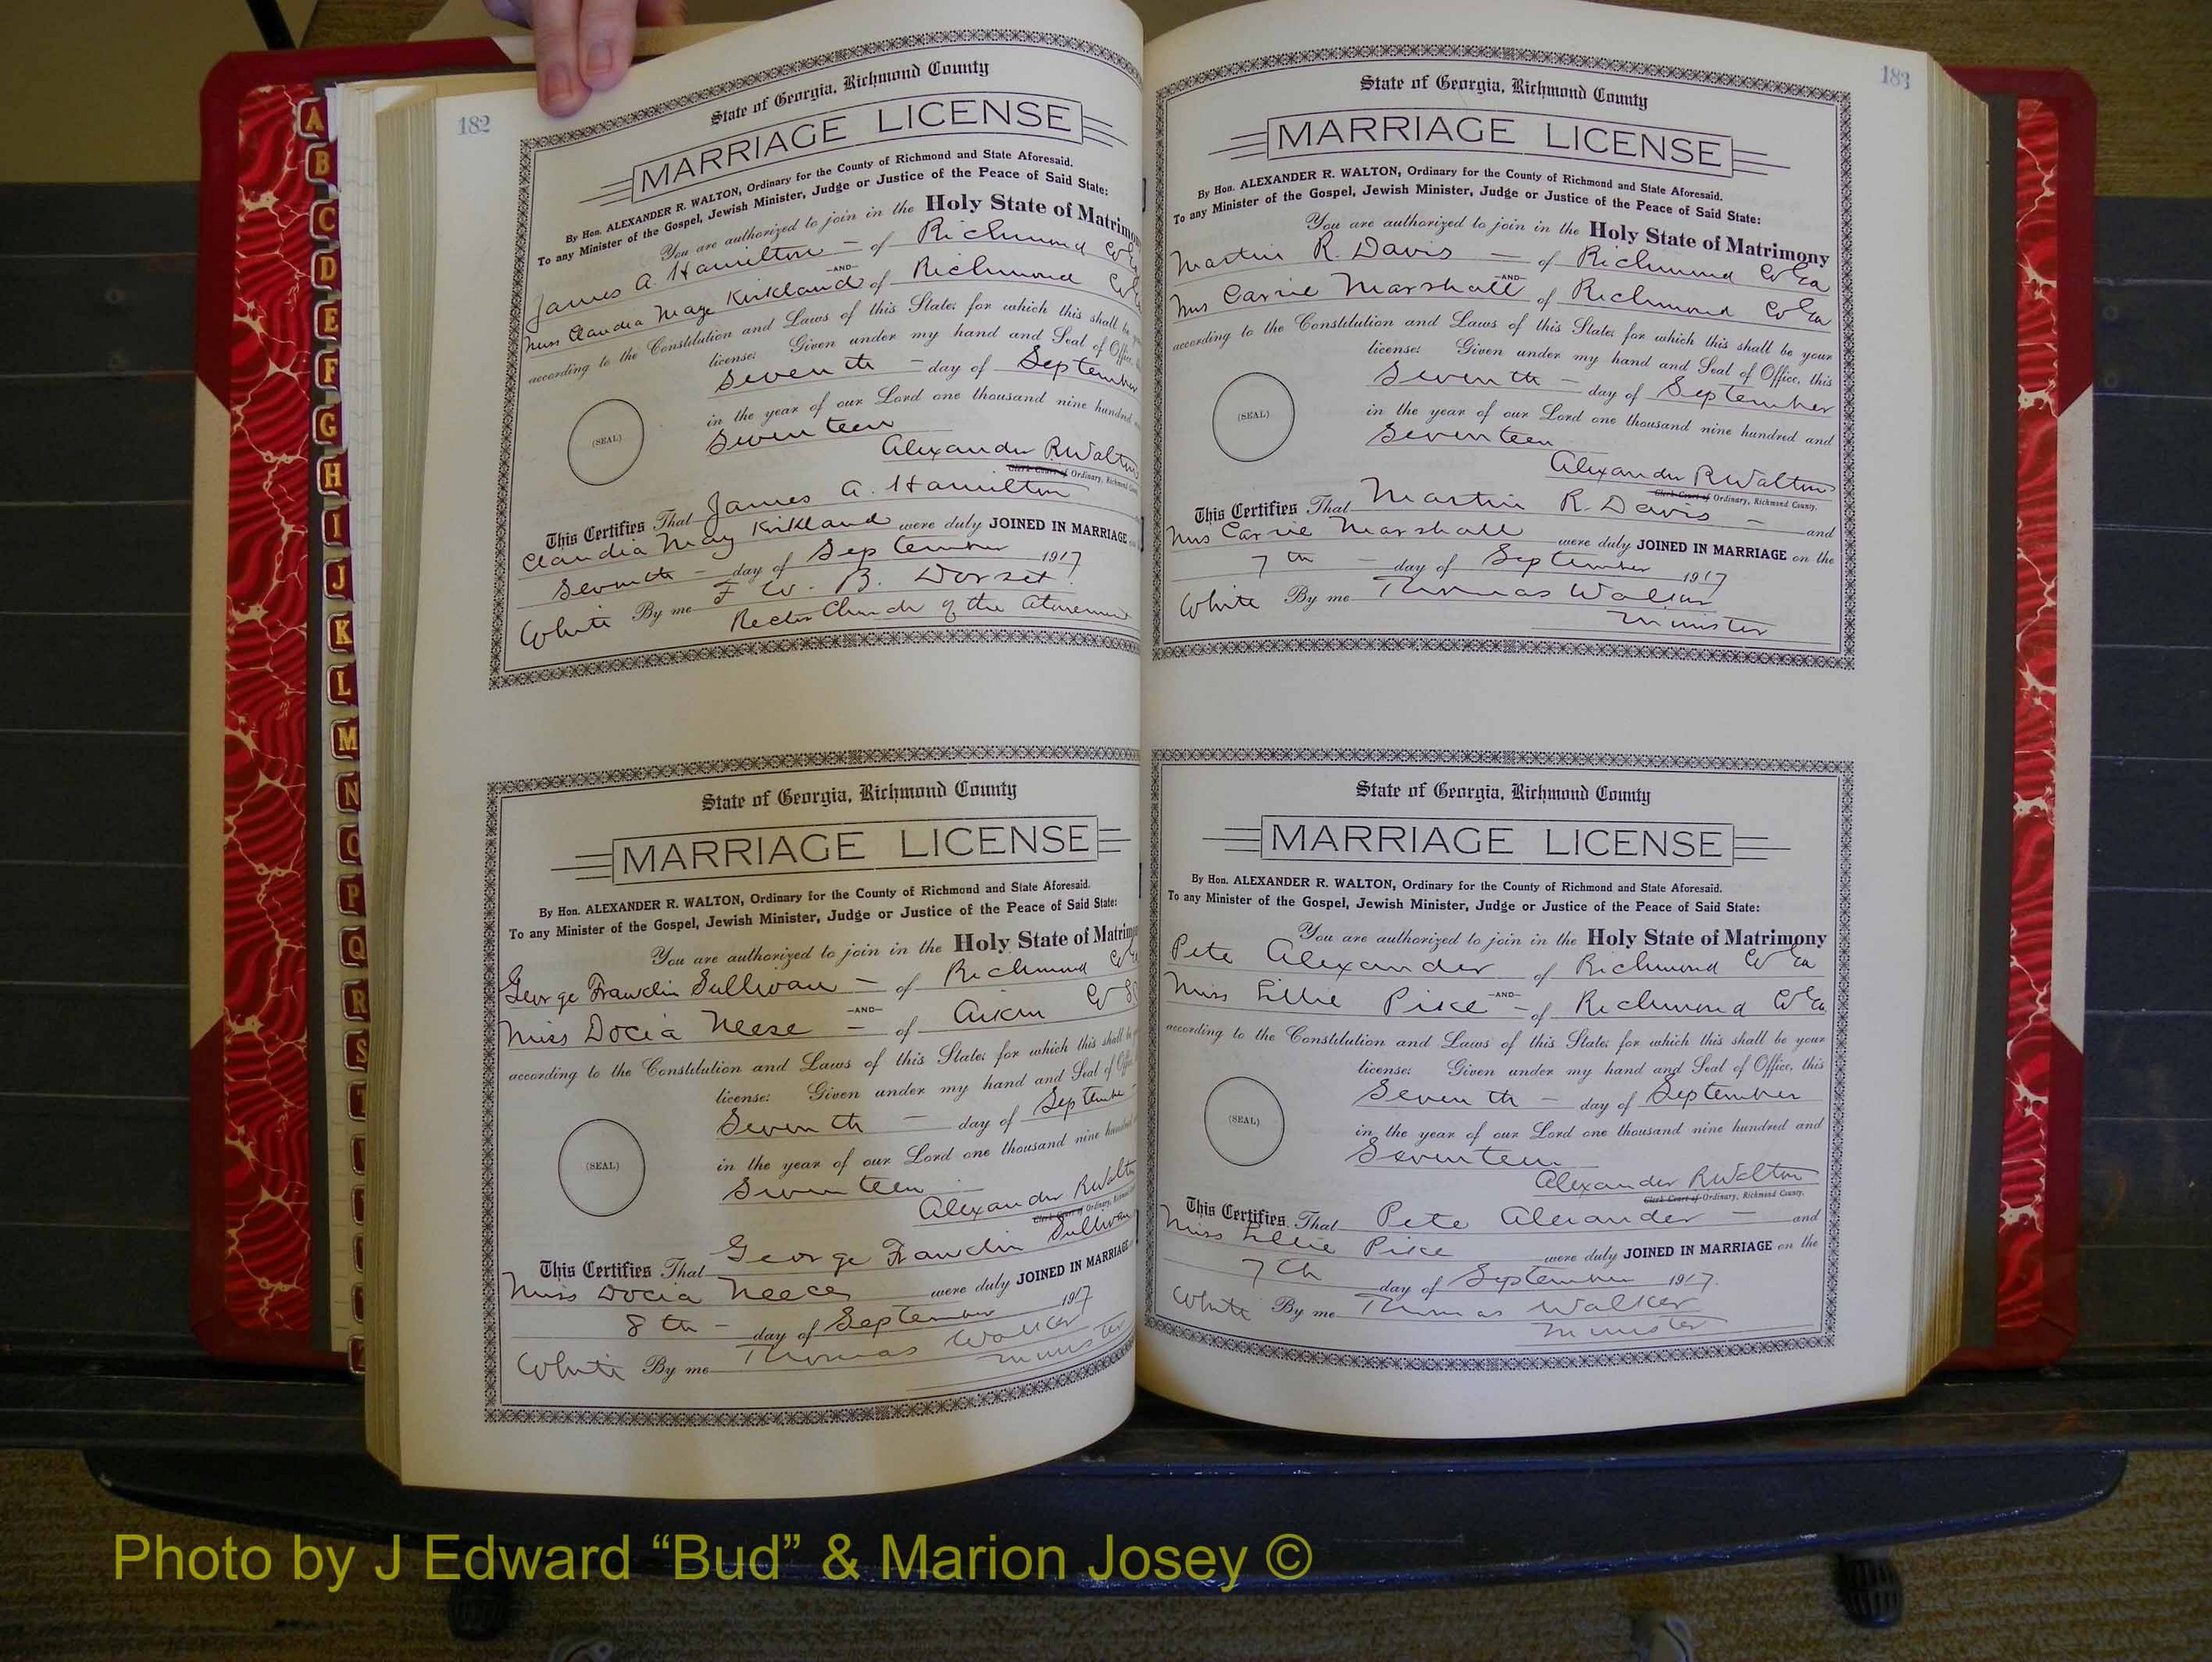 182
State of Georgia, Richmond County
MARRIAGE LICENSE
By Hon. ALEXANDER R. WALTON, Ordinary for the County of Richmond and State Aforesaid.
To any Minister of the Gospel, Jewish Minister, Judge or Justice of the Peace of Said State:
You are authorized to join in the Holy State of Matrimo
James A. Hamilton - of Richmond Co
-AND-
Miss Claudia Maye Kirkland of Richmond Co
according to the Constitution and Laws of this State; for which this shall be
license: Given under my hand and Seal of Office,
Seventh - day of September
in the year of our Lord one thousand nine hundred
Seventeen
(SEAL)
Alexander R Walton
Clerk Court of Ordinary, Richmond
This Certifies That James A. Hamilton
Claudia May Kirkland were duly JOINED IN MARRIAGE
Seventh - day of September 1917
White By me F W. B. Dorset.
Rector Church of the Atonement
State of Georgia, Richmond County
MARRIAGE LICENSE
By Hon. ALEXANDER R. WALTON, Ordinary for the County of Richmond and State Aforesaid.
To any Minister of the Gospel, Jewish Minister, Judge or Justice of the Peace of Said State:
You are authorized to join in the Holy State of Matrim
George Franclin Sullivan - of Richmond Co
-AND-
Miss Docia Neese - of Aiken Co
according to the Constitution and Laws of this State; for which this shall be
license: Given under my hand and Seal of
Seventh - day of Septembe
in the year of our Lord one thousand nine hundred
Seventeen
(SEAL)
Alexander R Walto
Clerk Court of Ordinary,
This Certifies That George Franclin Sullivan
Miss Docia Neece were duly JOINED IN MARRIAGE
8th - day of September 1917
White By me Thomas Walker
minister
183
State of Georgia, Richmond County
MARRIAGE LICENSE
By Hon. ALEXANDER R. WALTON, Ordinary for the County of Richmond and State Aforesaid.
To any Minister of the Gospel, Jewish Minister, Judge or Justice of the Peace of Said State:
You are authorized to join in the Holy State of Matrimony
Martin R. Davis - of Richmond Co Ga
-AND-
Mrs Carrie Marshall of Richmond Co Ga
according to the Constitution and Laws of this State; for which this shall be your
license: Given under my hand and Seal of Office, this
Seventh - day of September
in the year of our Lord one thousand nine hundred and
Seventeen
(SEAL)
Alexander R Walton
Clerk Court of Ordinary, Richmond County.
This Certifies That Martin R. Davis - and
Mrs Carrie Marshall were duly JOINED IN MARRIAGE on the
7th - day of September 1917
White By me Thomas Walker
Minister
State of Georgia, Richmond County
MARRIAGE LICENSE
By Hon. ALEXANDER R. WALTON, Ordinary for the County of Richmond and State Aforesaid.
To any Minister of the Gospel, Jewish Minister, Judge or Justice of the Peace of Said State:
You are authorized to join in the Holy State of Matrimony
Pete Alexander of Richmond Co Ga
-AND-
Miss Lillie Pike - of Richmond Co Ga
according to the Constitution and Laws of this State; for which this shall be your
license: Given under my hand and Seal of Office, this
Seventh - day of September
in the year of our Lord one thousand nine hundred and
Seventeen
(SEAL)
Alexander R Walton
Clerk Court of Ordinary, Richmond County.
This Certifies That Pete Alexander - and
Miss Lillie Pike were duly JOINED IN MARRIAGE on the
7th day of September 1917.
White By me Thomas Walker
Minister
A
B
C
D
E
F
G
H
I
J
K
L
M
N
O
P
Q
R
S
T
Photo by J Edward “Bud” & Marion Josey ©